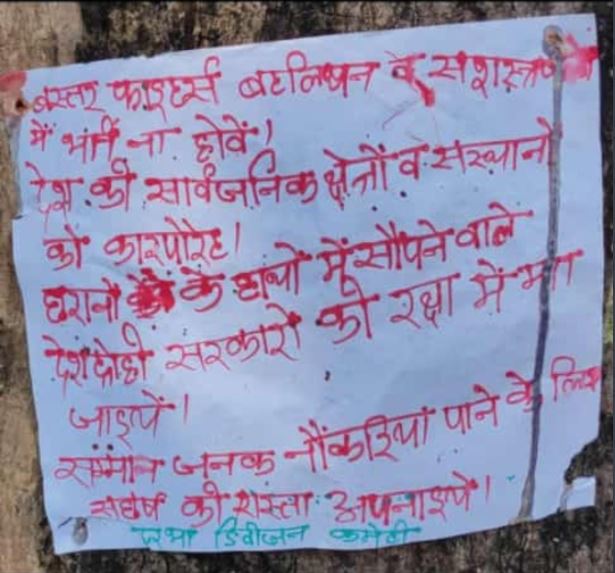 बस्तर फाइटर्स बटालियन व सशस्त्र
में भर्ति ना होवें!
देश की सार्वजनिक क्षेत्रों व संस्थानों
को कारपोरेट।
घरानों के हाथों में सौपने वाले
देशद्रोही सरकारों की रक्षा में मत
जाइये।
सम्मान जनक नौकरियां पाने के लिए
संघर्ष की रास्ता अपनाइये।
दरभा डिवीजन कमेटी